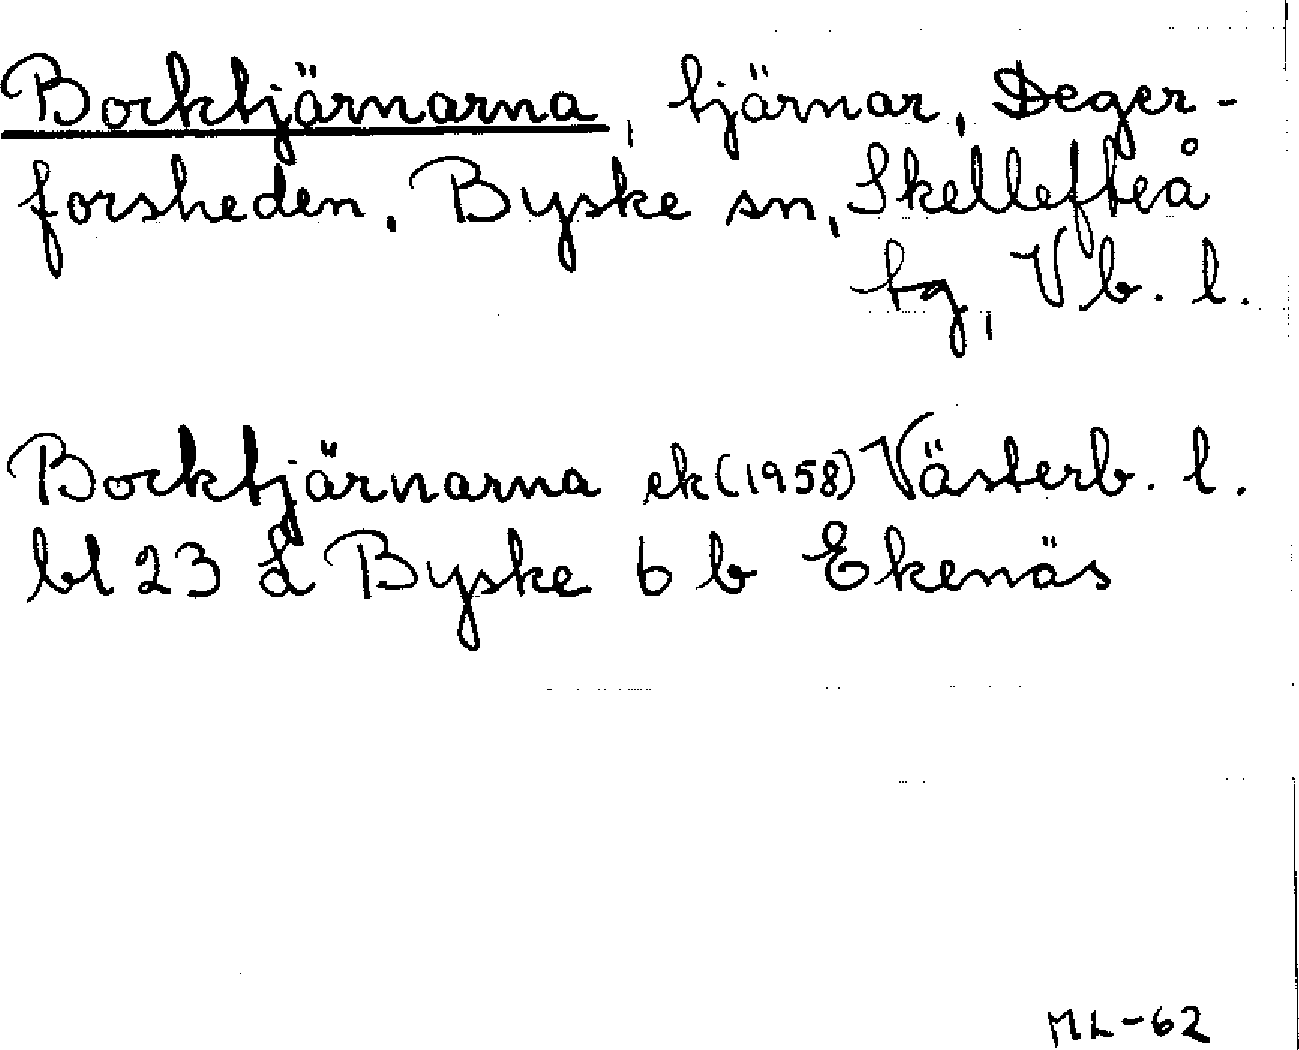 Bocktjärnarna, tjärnar, Deger-
forsheden, Byske sn, Skellefteå
tg, Vb. l.
Bocktjärnarna ek (1958) Västerb. l.
bl 23 L Byske 6 b Ekenäs
ML-62